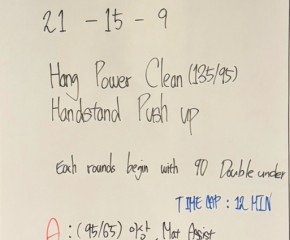 21 - 15 - 9
Hang Power Clean (135/95)
Handstand Push up
Each rounds begin with 90 Double under
TIME CAP : 12 MIN
A : (95/65) Mat Assist